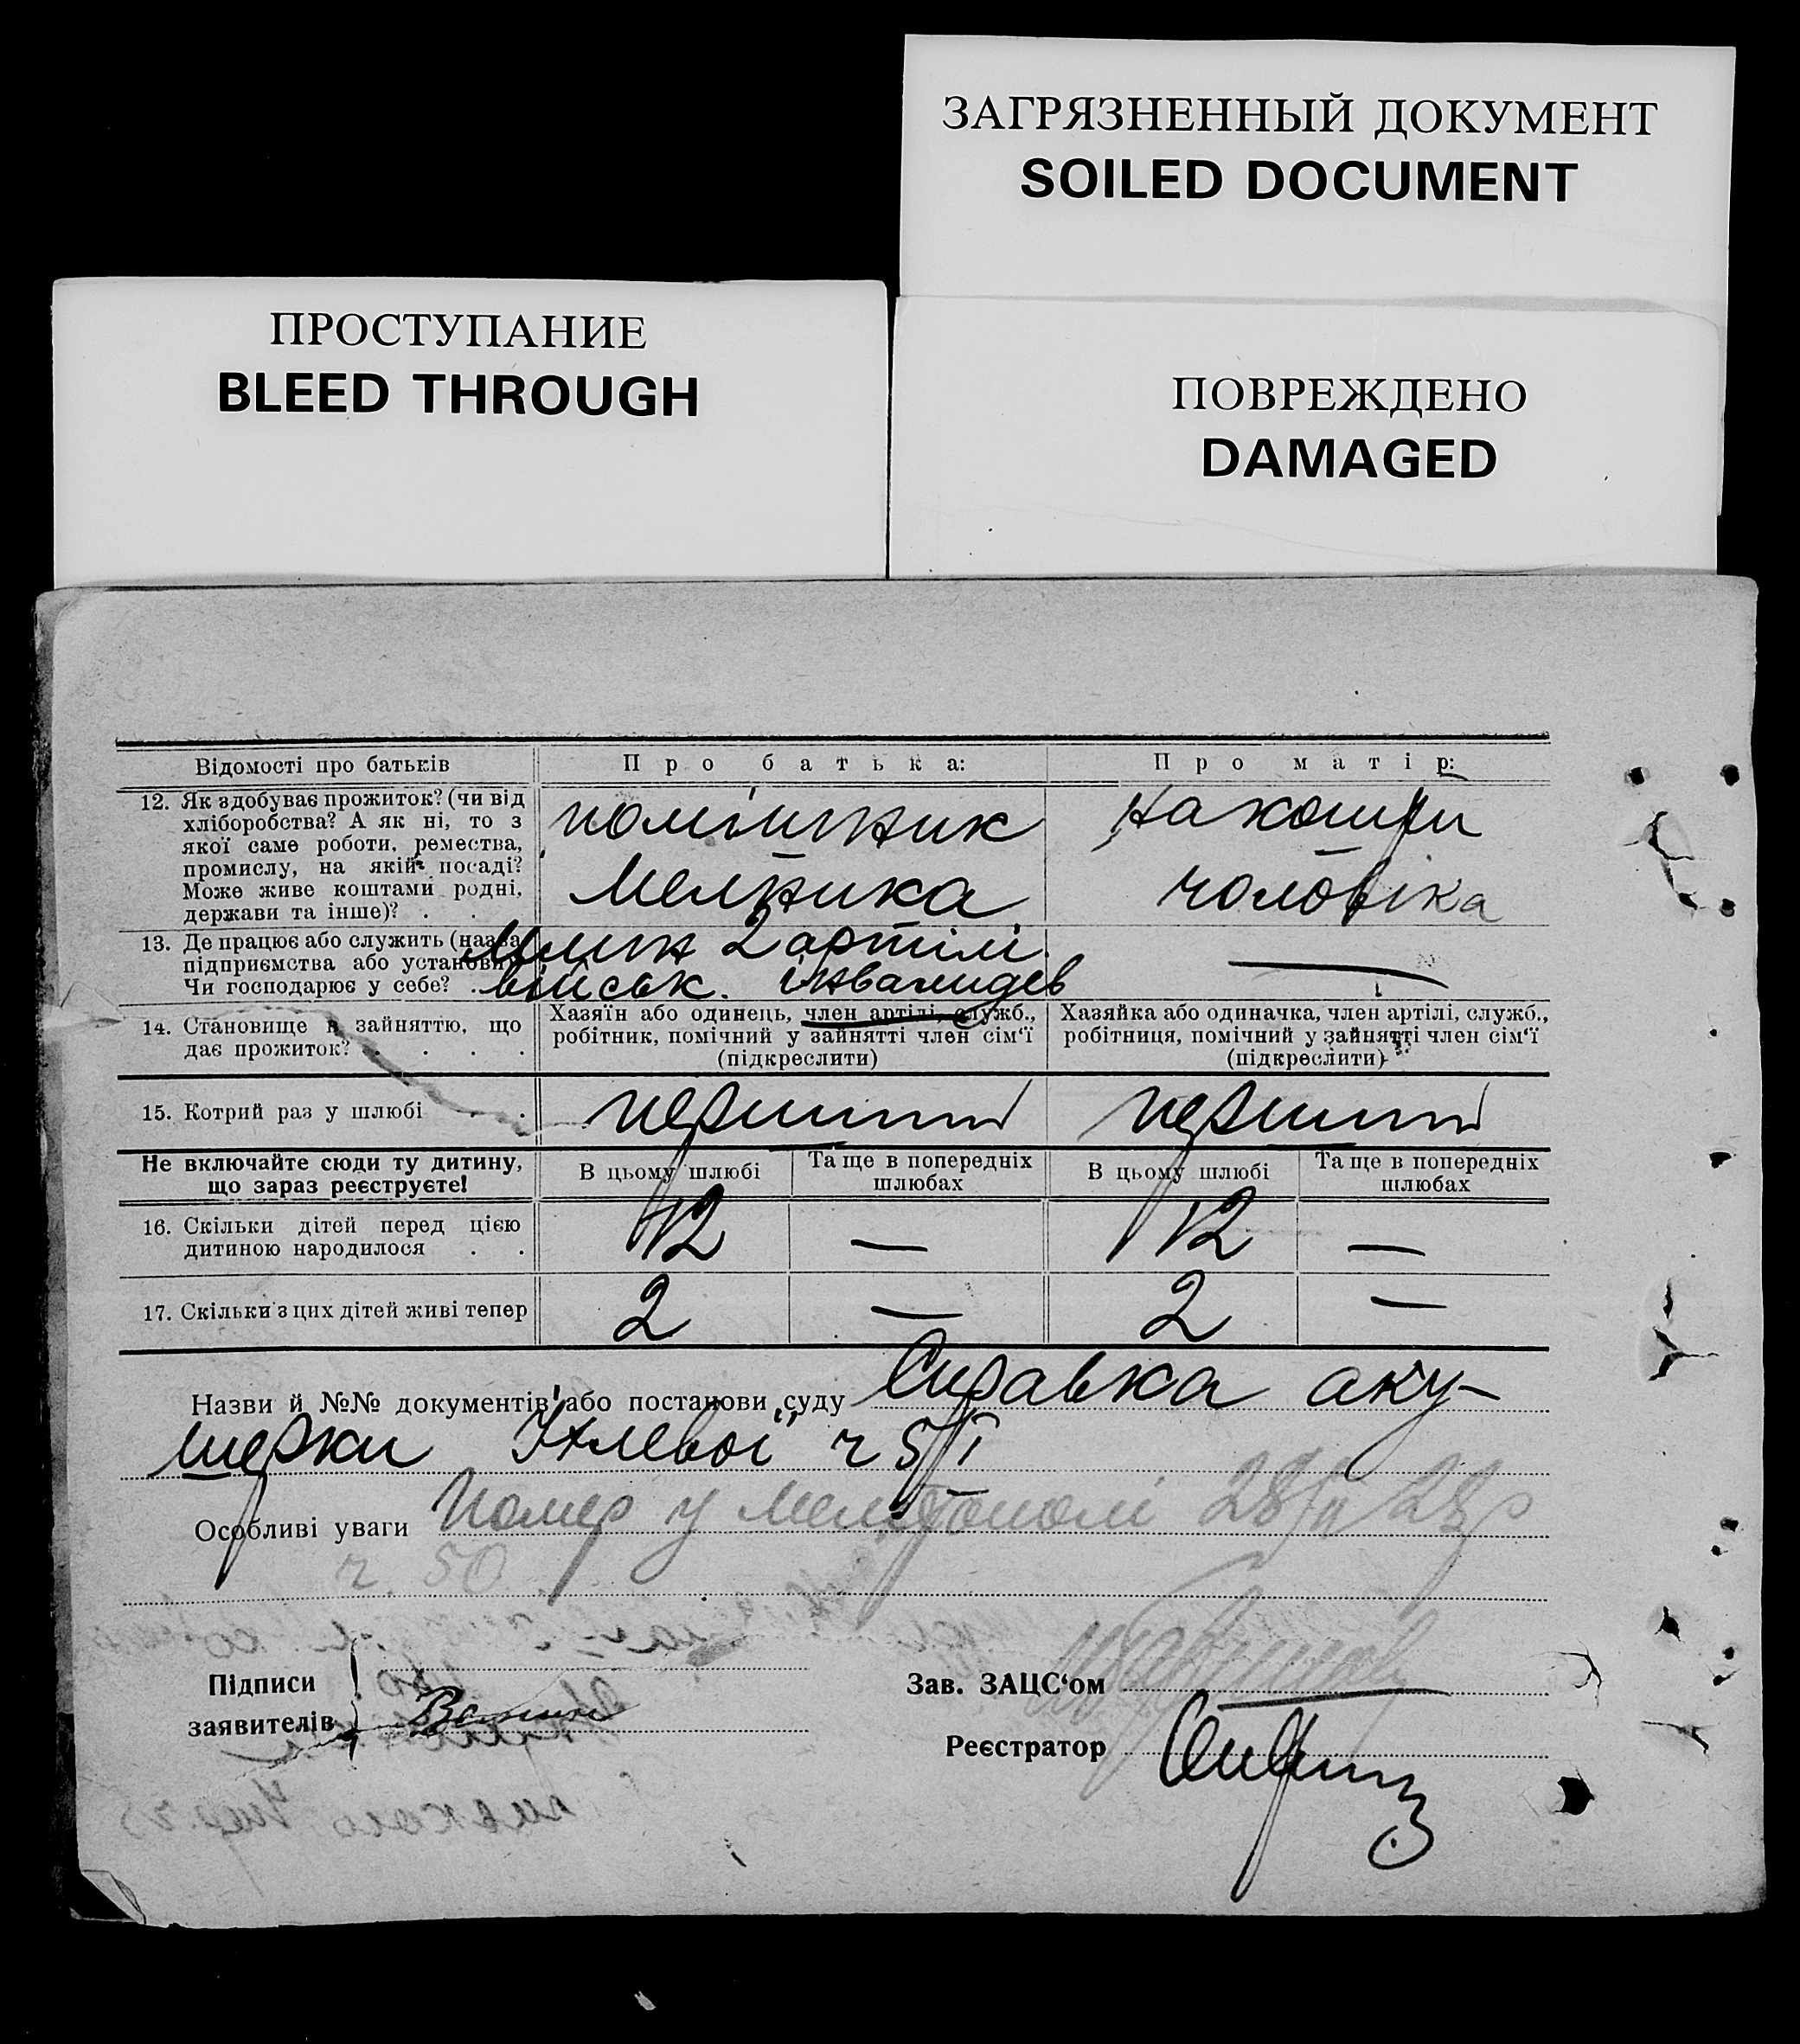 ЗАГРЯЗНЕННЫЙ ДОКУМЕНТ
SOILED DOCUMENT
ПРОСТУПАНИЕ
BLEED THROUGH
ПОВРЕЖДЕНО
DAMAGED
Відомості про батьків
Про батька:
Про матір:
12. Як здобуває прожиток? (чи від
хліборобства? А як ні, то з
якої саме роботи, ремества,
промислу, на якій посаді?
Може живе коштами родні,
держави та інше)? . .
помішник
Мелника
на кошти
чоловіка
13. Де працює або служить (назва
підприємства або установи)
Чи господарює у себе? .
Млин 2 артілі
військ. інвалидев
—
14. Становище в зайняттю, що
дає прожиток? . . . .
Хазяїн або одинець, член артілі, служб.,
робітник, помічний у зайнятті член сім‘ї
(підкреслити)
Хазяйка або одиначка, член артілі, служб.,
робітниця, помічний у зайнятті член сім‘ї
(підкреслити)
15. Котрий раз у шлюбі . .
перший
перший
Не включайте сюди ту дитину,
що зараз реєструєте!
В цьому шлюбі
Та ще в попередніх
шлюбах
В цьому шлюбі
Та ще в попередніх
шлюбах
16. Скільки дітей перед цією
дитиною народилося . .
12
—
12
—
17. Скільки з цих дітей живі тепер
2
—
2
—
Назви й №№ документів або постанови суду Справка аку-
шерки ч 5/I
Особливі уваги Помер у Мелітополі 28/II 28р
ч. 50
Підписи
заявителів
Зав. ЗАЦС‘ом
Реєстратор